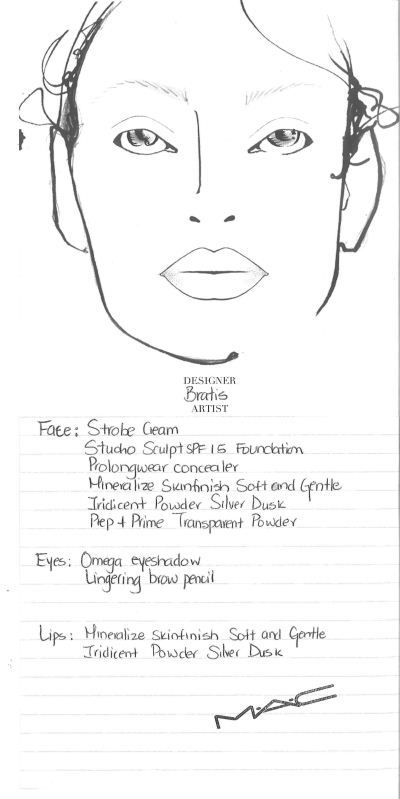 DESIGNER
Bratis
ARTIST
Face: Strobe Cream
Studio Sculpt SPF 15 Foundation
Prolongwear concealer
Mineralize Skinfinish Soft and Gentle
Iridicent Powder Silver Dusk
Prep + Prime Transparent Powder
Eyes: Omega eyeshadow
Lingering brow pencil
Lips: Mineralize Skinfinish Soft and Gentle
Iridicent Powder Silver Dusk
M·A·C